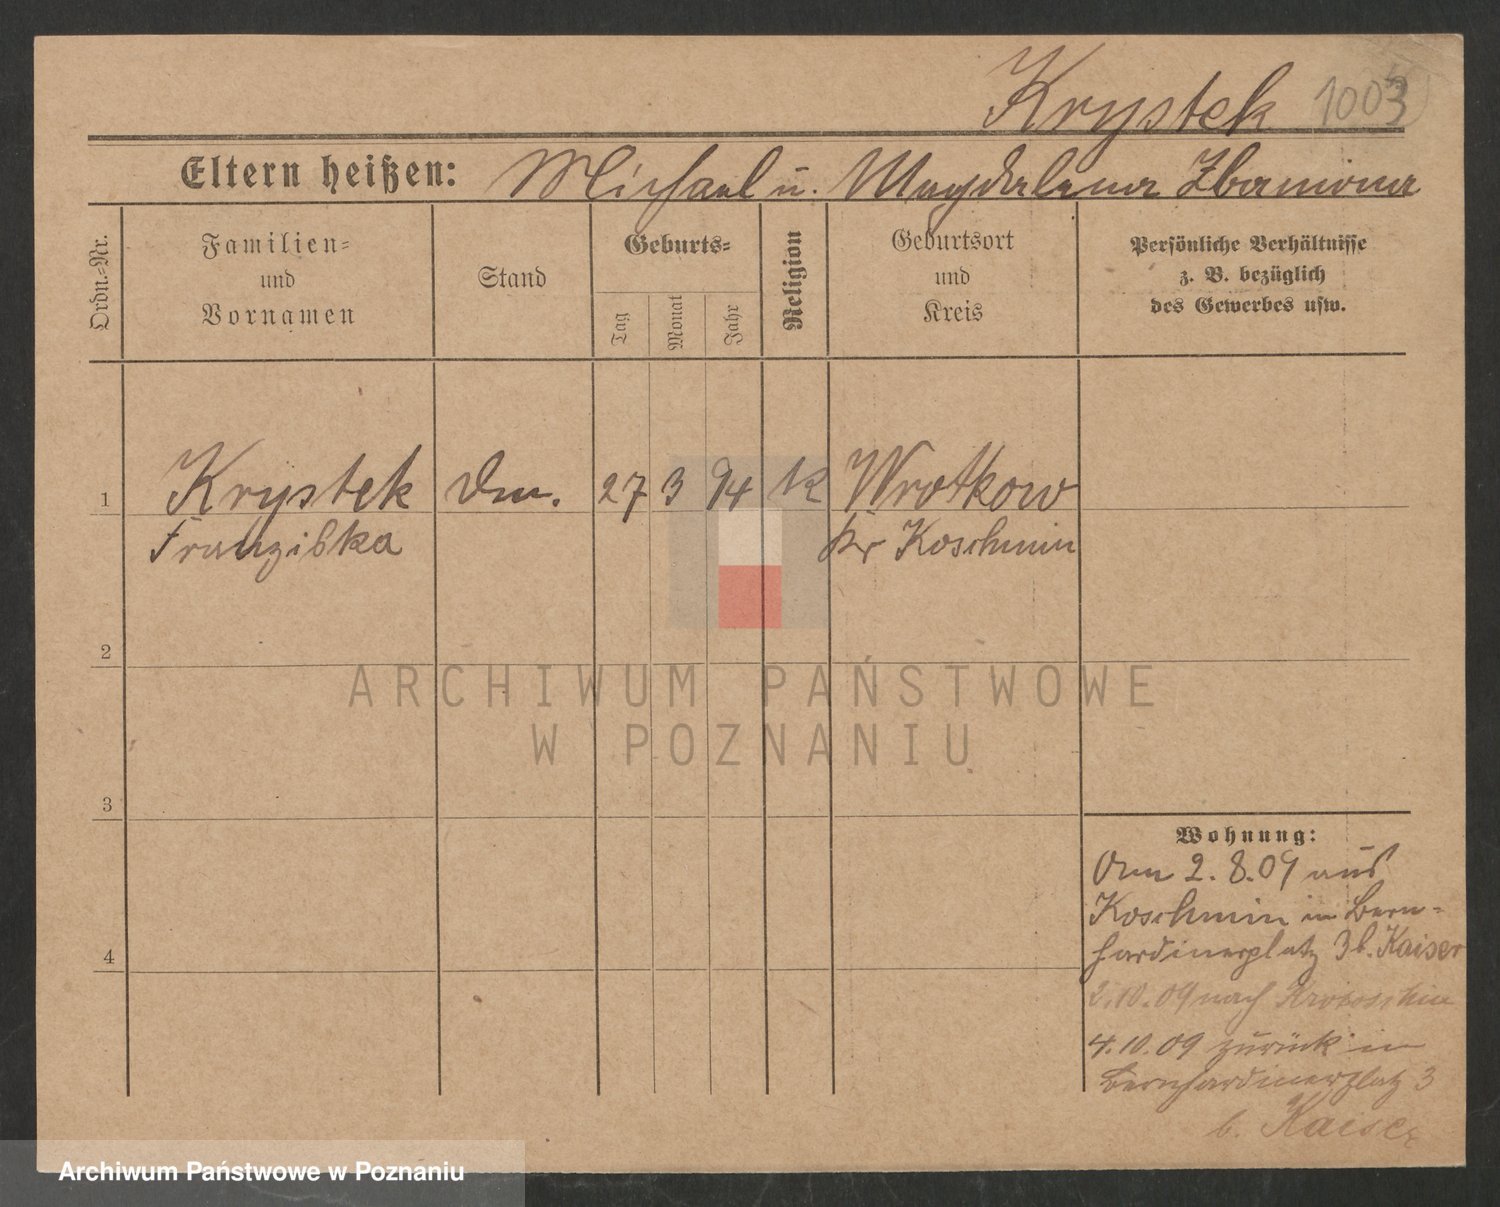 Krystek 1003
Eltern heißen: Michael u. Magdalena
Ordn.-Nr.
Familien-
und
Vornamen
Stand
Geburts-
Tag
Monat
Jahr
Religion
Geburtsort
und
Kreis
Persönliche Verhältnisse
z. B. bezüglich
des Gewerbes usw.
1 Krystek 27 3 94 k Wrotkow
Franziska Kr Koschmin
2
ARCHIWUM PAŃSTWOWE
W POZNANIU
3
4
Wohnung:
2. 8. 09 aus
Koschmin in Bern-
hardinerplatz 3 b. Kaiser
2. 10. 09 nach Krotoschin
4. 10. 09 zurück in
Bernhardinerplatz 3
b. Kaiser
Archiwum Państwowe w Poznaniu